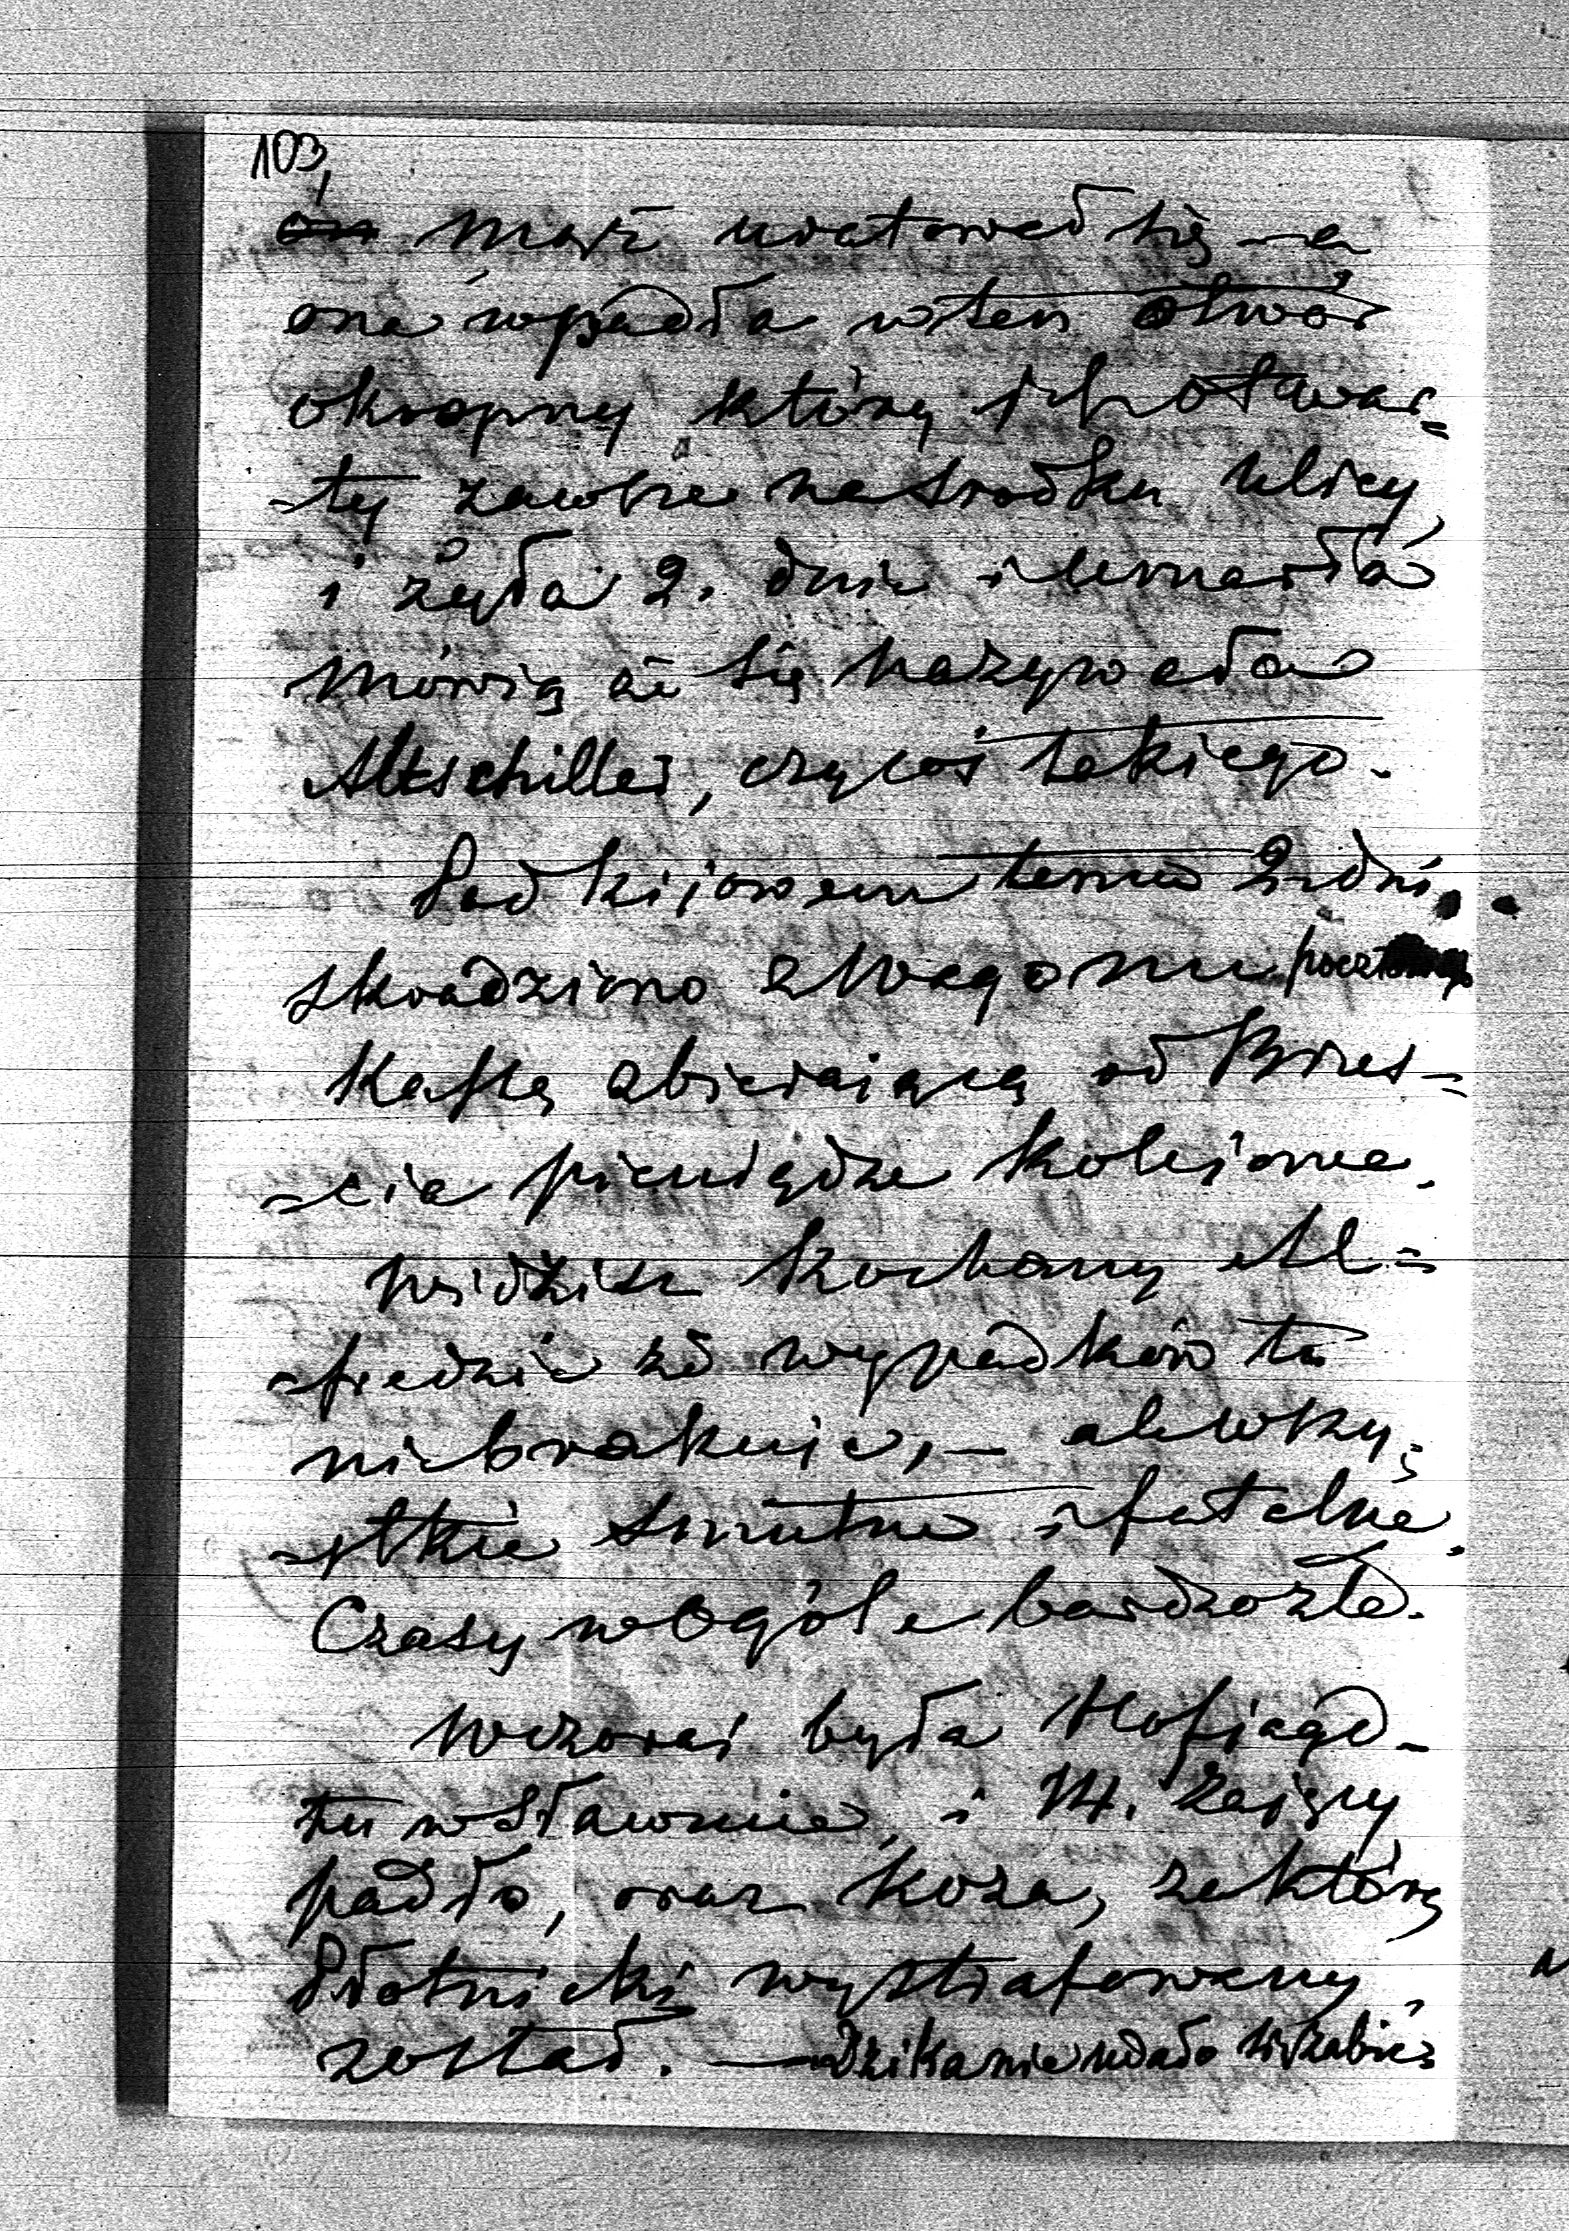 103,
on mąż uratował się – a
ona wpadła w ten otwór
okropny który jest otwar=
=ty zawsze na środku ulicy
i żyła 2. dnie i umarła
mówią że się nazywała
Altschiller, czy coś takiego.
Pod Kijowem temu 2 dni,
skradziono z wagonu pocztowego
kassę zbierającą od Brześ=
=cia pieniądze kolejowe.
Widzisz kochany Al=
=fredzie że wypadków tu
niebrakuje, – ale wszy=
=stkie smutne i fatalne.
Czasy wogóle bardzo złe.
Wczoraj była Hofjagd –
tu w Sławucie, i 14. Zajęcy
padło, oraz koza, za którą
Płotnicki wysztrafowany
został. – Dzika nie udało się zabić